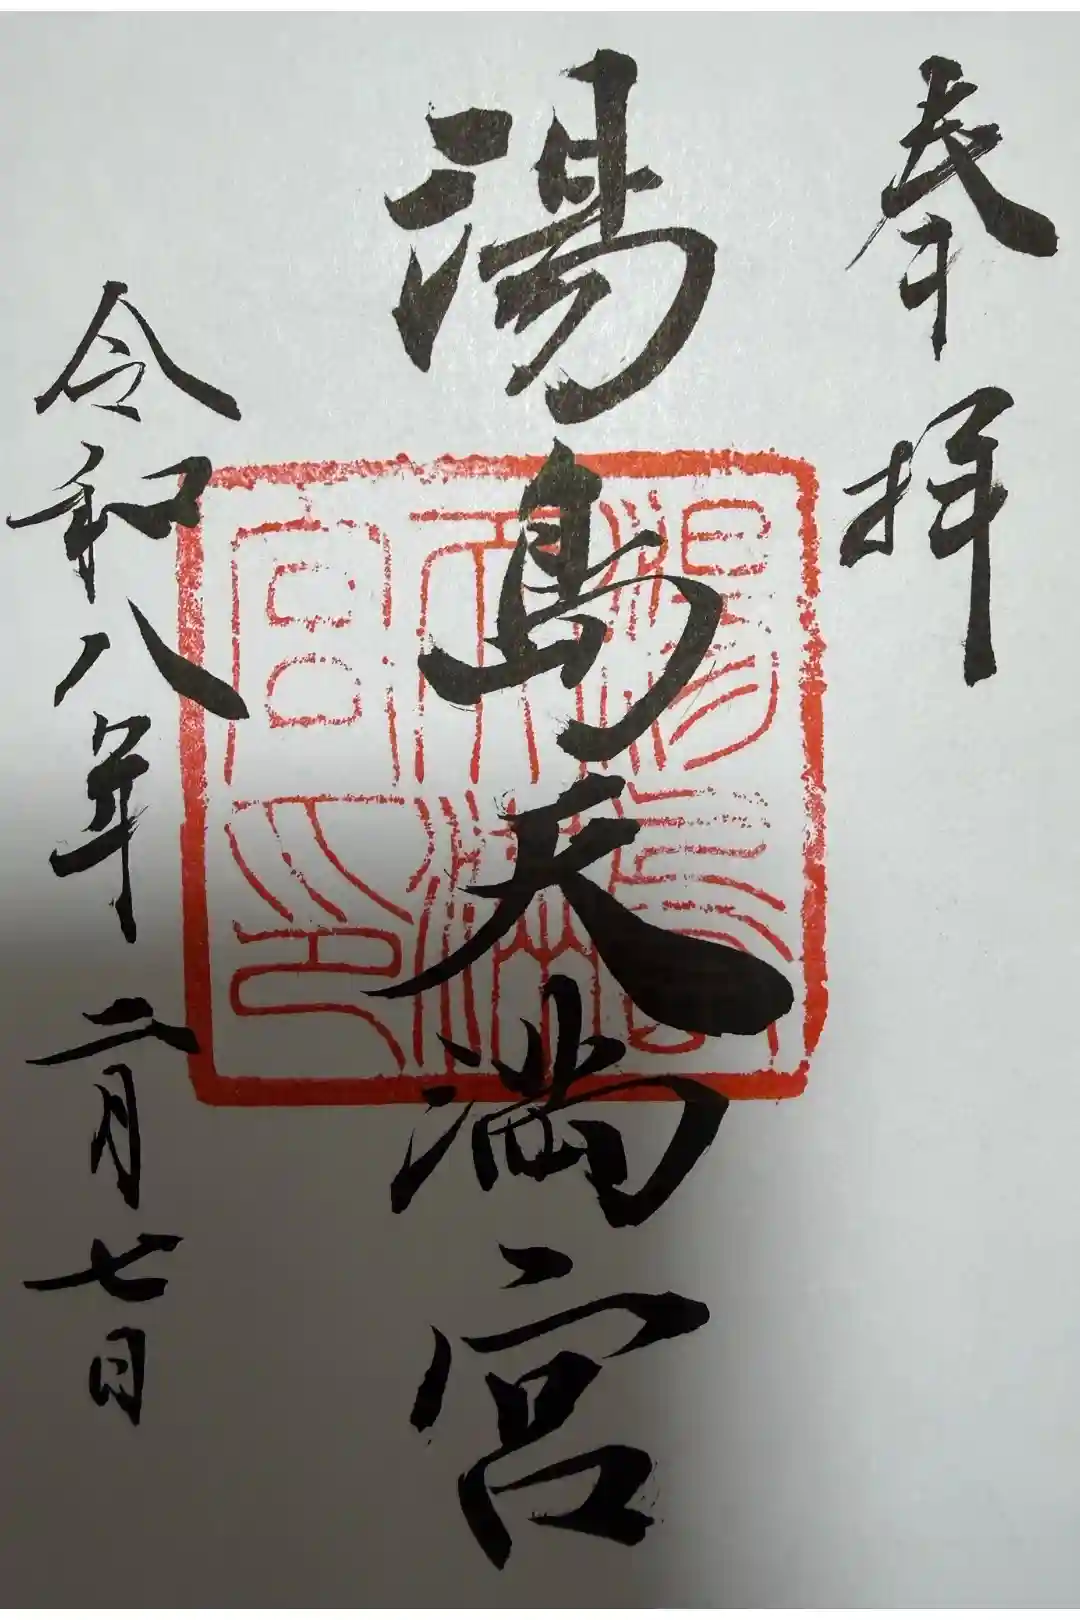 奉拝
湯島天満宮
令和八年二月七日
湯島天満宮印